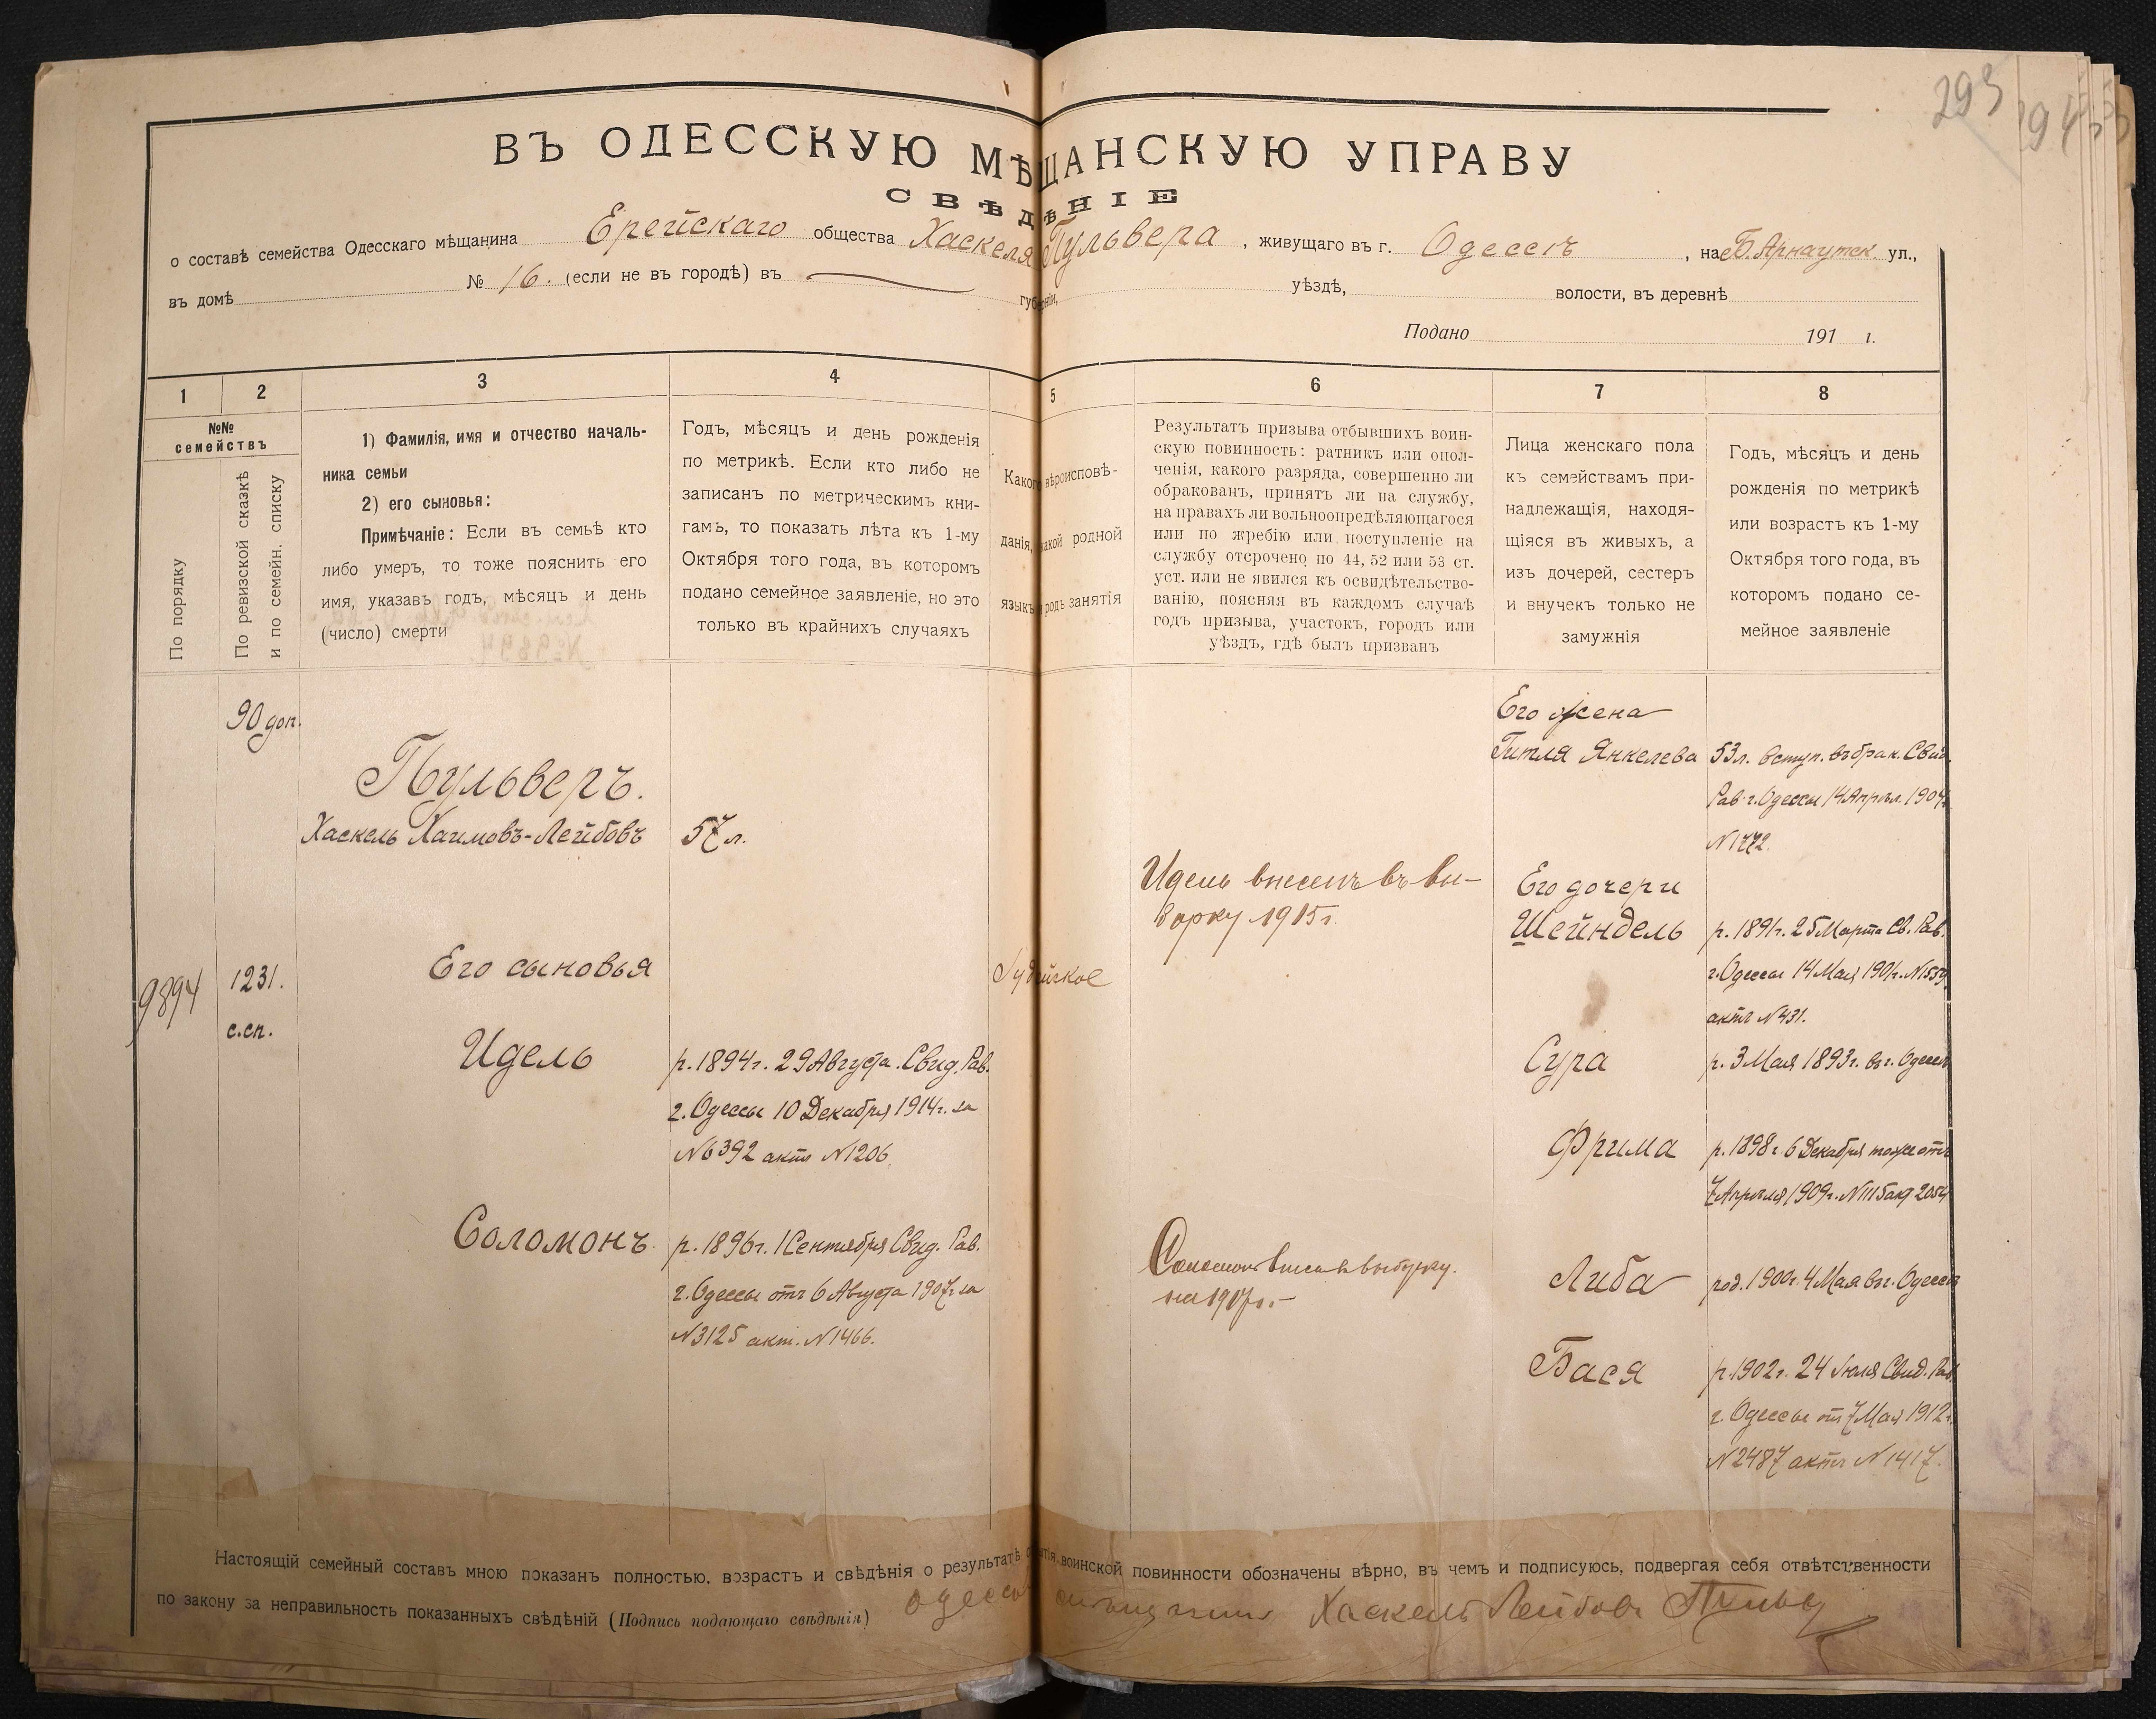 293
294
ВЪ ОДЕССКУЮ МѢЩАНСКУЮ УПРАВУ
СВѢДѢНІЕ
о составѣ семейства Одесскаго мѣщанина Ерейскаго общества Хаскеля Пульвера, живущаго въ г. Одессѣ, на Б. Арнаутск. ул.,
въ домѣ № 16. (если не въ городѣ) въ губерніи, уѣздѣ, волости, въ деревнѣ
Подано 191 г.
1 2 3 4 5 6 7 8
№№
семействъ
По порядку
По ревизской сказкѣ
и по семейн. списку
1) Фамилія, имя и отчество началь-
ника семьи
2) его сыновья:
Примѣчаніе: Если въ семьѣ кто
либо умеръ, то тоже пояснить его
имя, указавъ годъ, мѣсяцъ и день
(число) смерти
Годъ, мѣсяцъ и день рожденія
по метрикѣ. Если кто либо не
записанъ по метрическимъ кни-
гамъ, то показать лѣта къ 1-му
Октября того года, въ которомъ
подано семейное заявленіе, но это
только въ крайнихъ случаяхъ
Какого вѣроисповѣ-
данія, какой родной
языкъ и родъ занятія
Результатъ призыва отбывшихъ воин-
скую повинность: ратникъ или опол-
ченія, какого разряда, совершенно ли
обракованъ, принятъ ли на службу,
на правахъ ли вольноопредѣляющагося
или по жребію или поступленіе на
службу отсрочено по 44, 52 или 53 ст.
уст. или не явился къ освидѣтельство-
ванію, поясняя въ каждомъ случаѣ
годъ призыва, участокъ, городъ или
уѣздъ, гдѣ былъ призванъ
Лица женскаго пола
къ семействамъ при-
надлежащія, находя-
щіяся въ живыхъ, а
изъ дочерей, сестеръ
и внучекъ только не
замужнія
Годъ, мѣсяцъ и день
рожденія по метрикѣ
или возрастъ къ 1-му
Октября того года, въ
которомъ подано се-
мейное заявленіе
9894
90 доп.
1231.
с.сп.
Пульверъ.
Хаскель Хаимовъ-Лейбовъ
57 л.
Его сыновья
Идель
р. 1894 г. 29 Августа. Свид. Рав.
г. Одессы 10 Декабря 1914 г. за
N 6392 актъ N 1206.
Соломонъ
р. 1896 г. 1 Сентября Свид. Рав.
г. Одессы отъ 6 Августа 1907 г. за
N 3125 акт. N 1466.
Іудейское
Идель внесенъ въ вы-
борку 1915 г.
Соломонъ внесен выборку
на 1917 г.
Его жена
Гитля Янкелева
53 л. вступ. въ брак. Свид.
Рав. г. Одессы 14 Апрѣл. 1904 г.
N 1772.
Его дочери
Шейндель
р. 1891 г. 25 Марта Св. Рав.
г. Одессы 14 Мая 1901 г. N 1559
актъ N 431.
Сура
р. 3 Мая 1893 г. въ г. Одессѣ
Фрима
р. 1898 г. 6 Декабря тоже отъ
7 Апрѣля 1909 г. N 1115 акт 2054
Либа
род. 1900 г. 4 Мая въ г. Одессѣ
Бася
р. 1902 г. 24 Іюля Свид. Рав.
г. Одессы от 7 Мая 1912 г.
N 2487 актъ N 1417.
Настоящій семейный составъ мною показанъ полностью, возрастъ и свѣдѣнія о результатѣ отбытія воинской повинности обозначены вѣрно, въ чемъ и подписуюсь, подвергая себя отвѣтственности
по закону за неправильность показанныхъ свѣдѣній (Подпись подающаго свѣдѣнія) Хаскель Лейбовъ